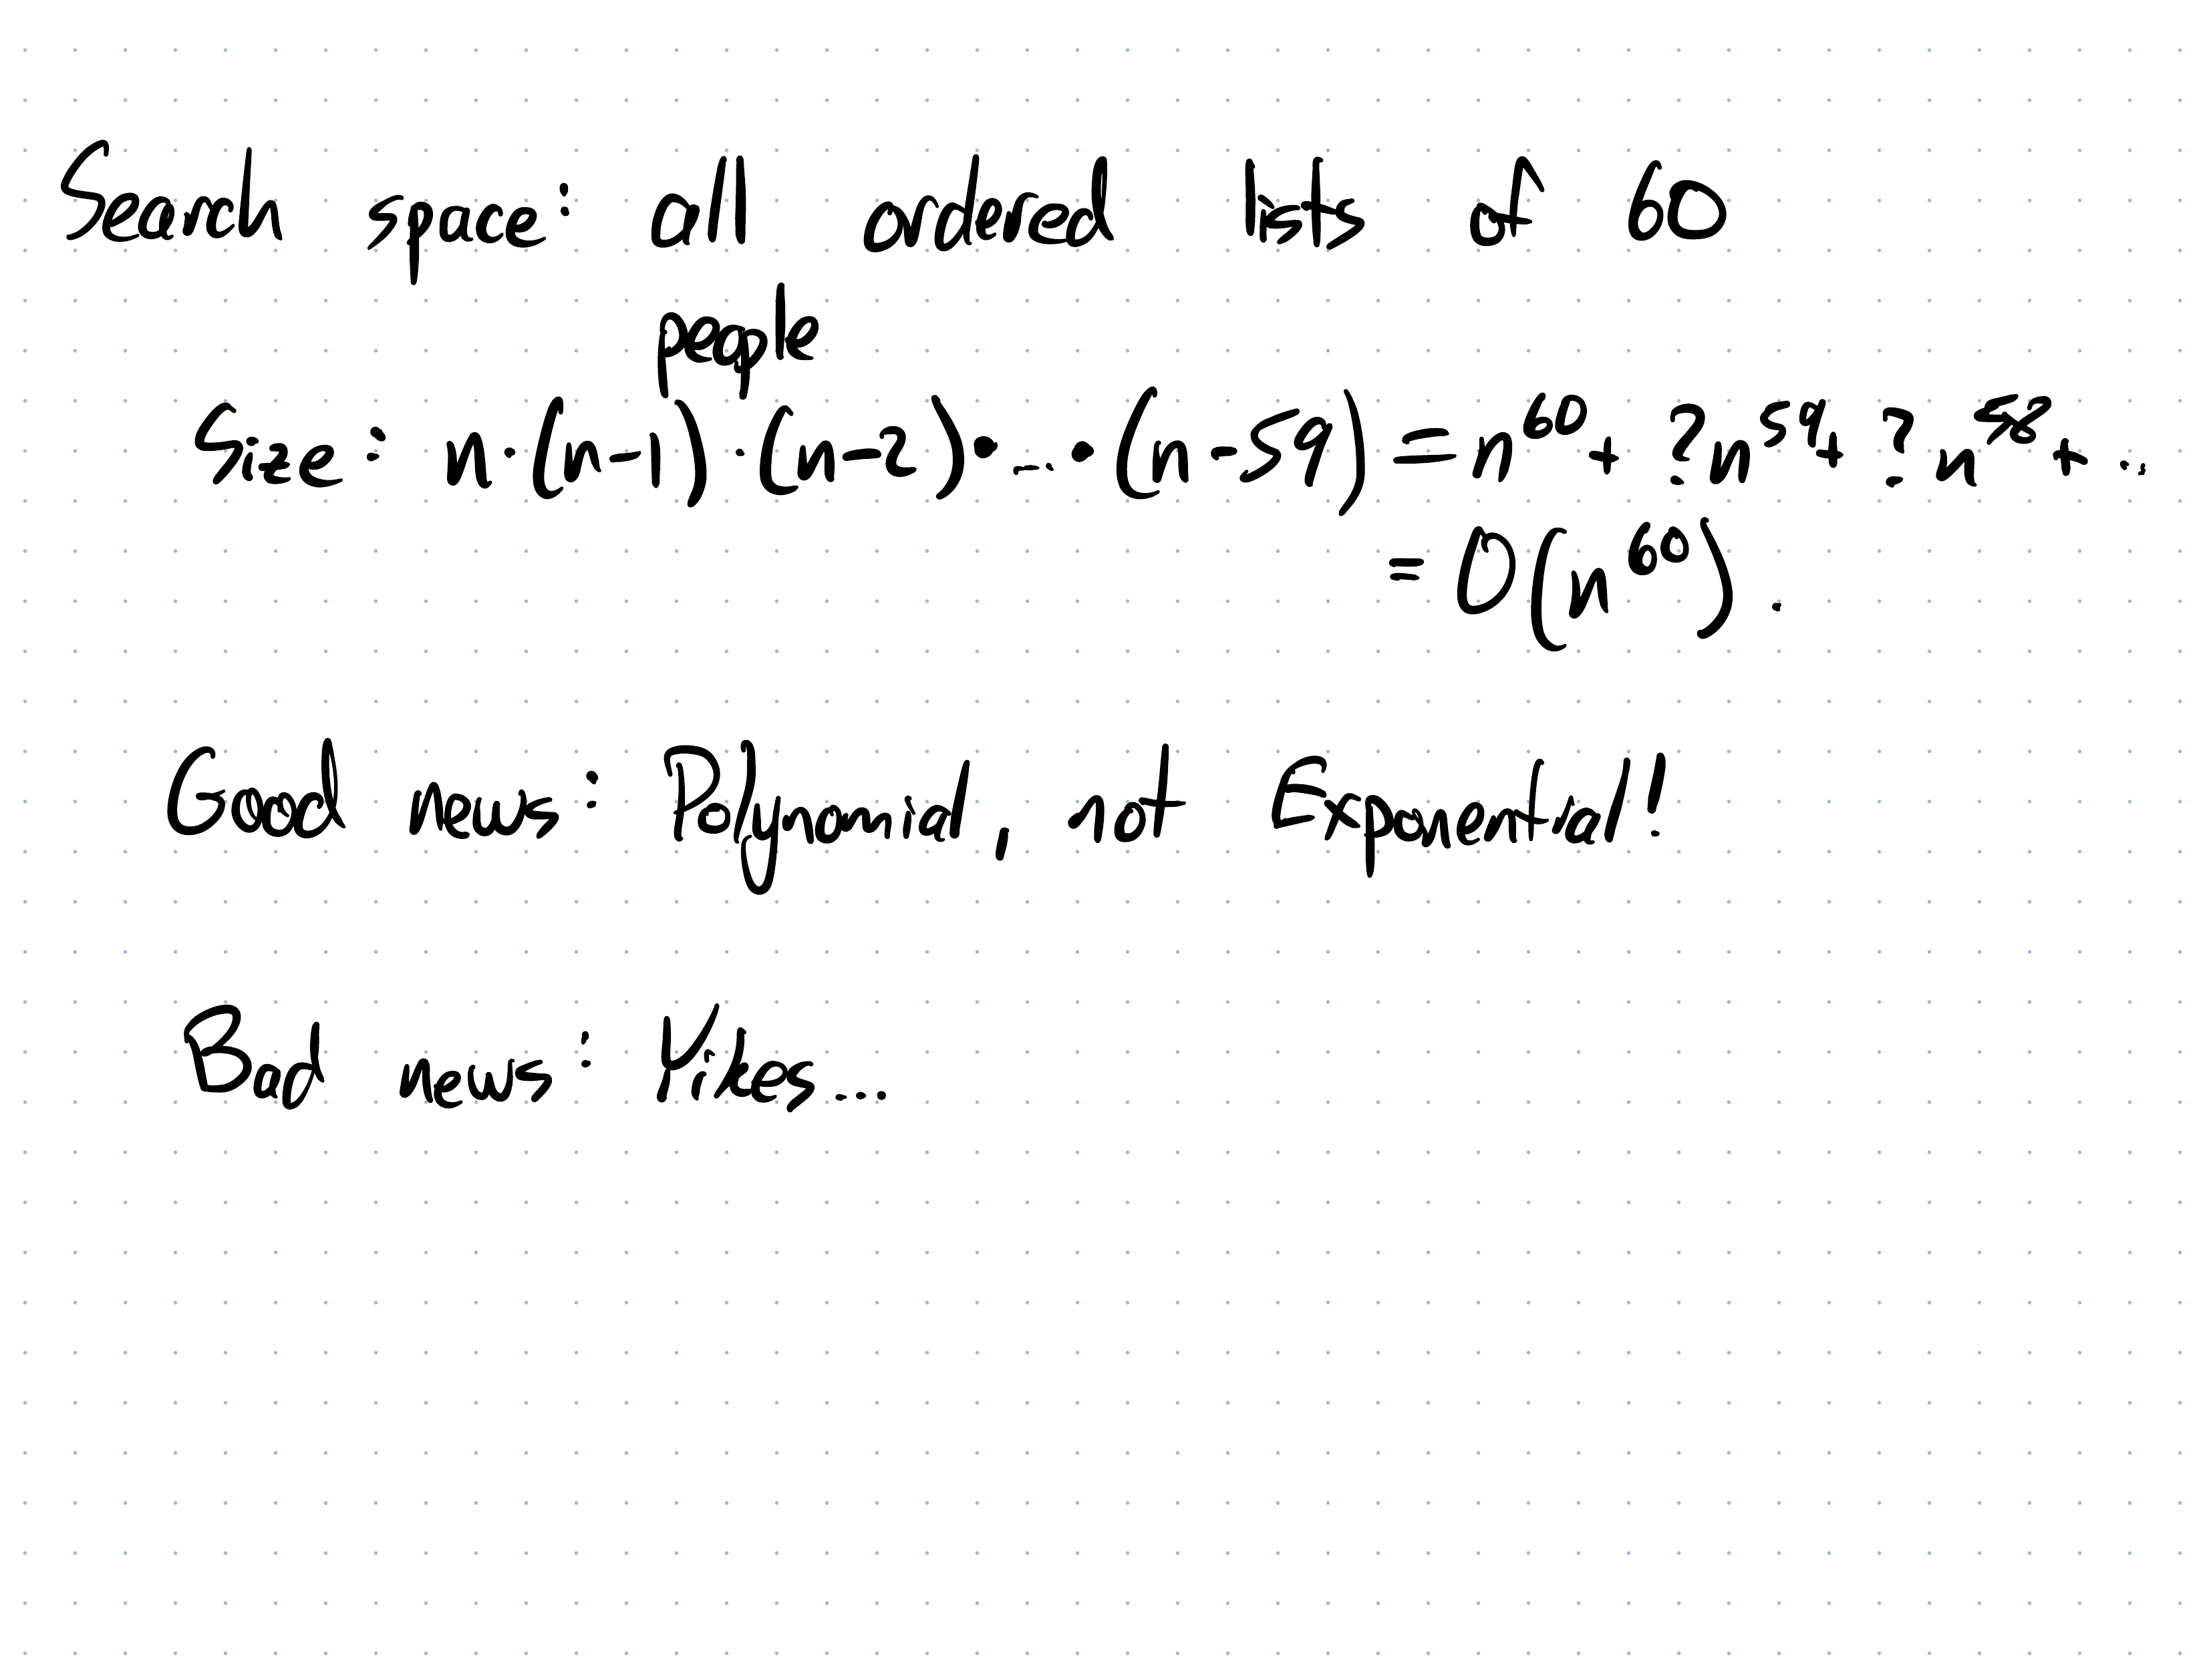 Search space: all ordered lists of 60
people
Size: n·(n-1)·(n-2)·...·(n-59) = n^60 + ?n^59 + ?n^58 + ...
= O(n^60).
Good news: Polynomial, not Exponential!
Bad news: Yikes...